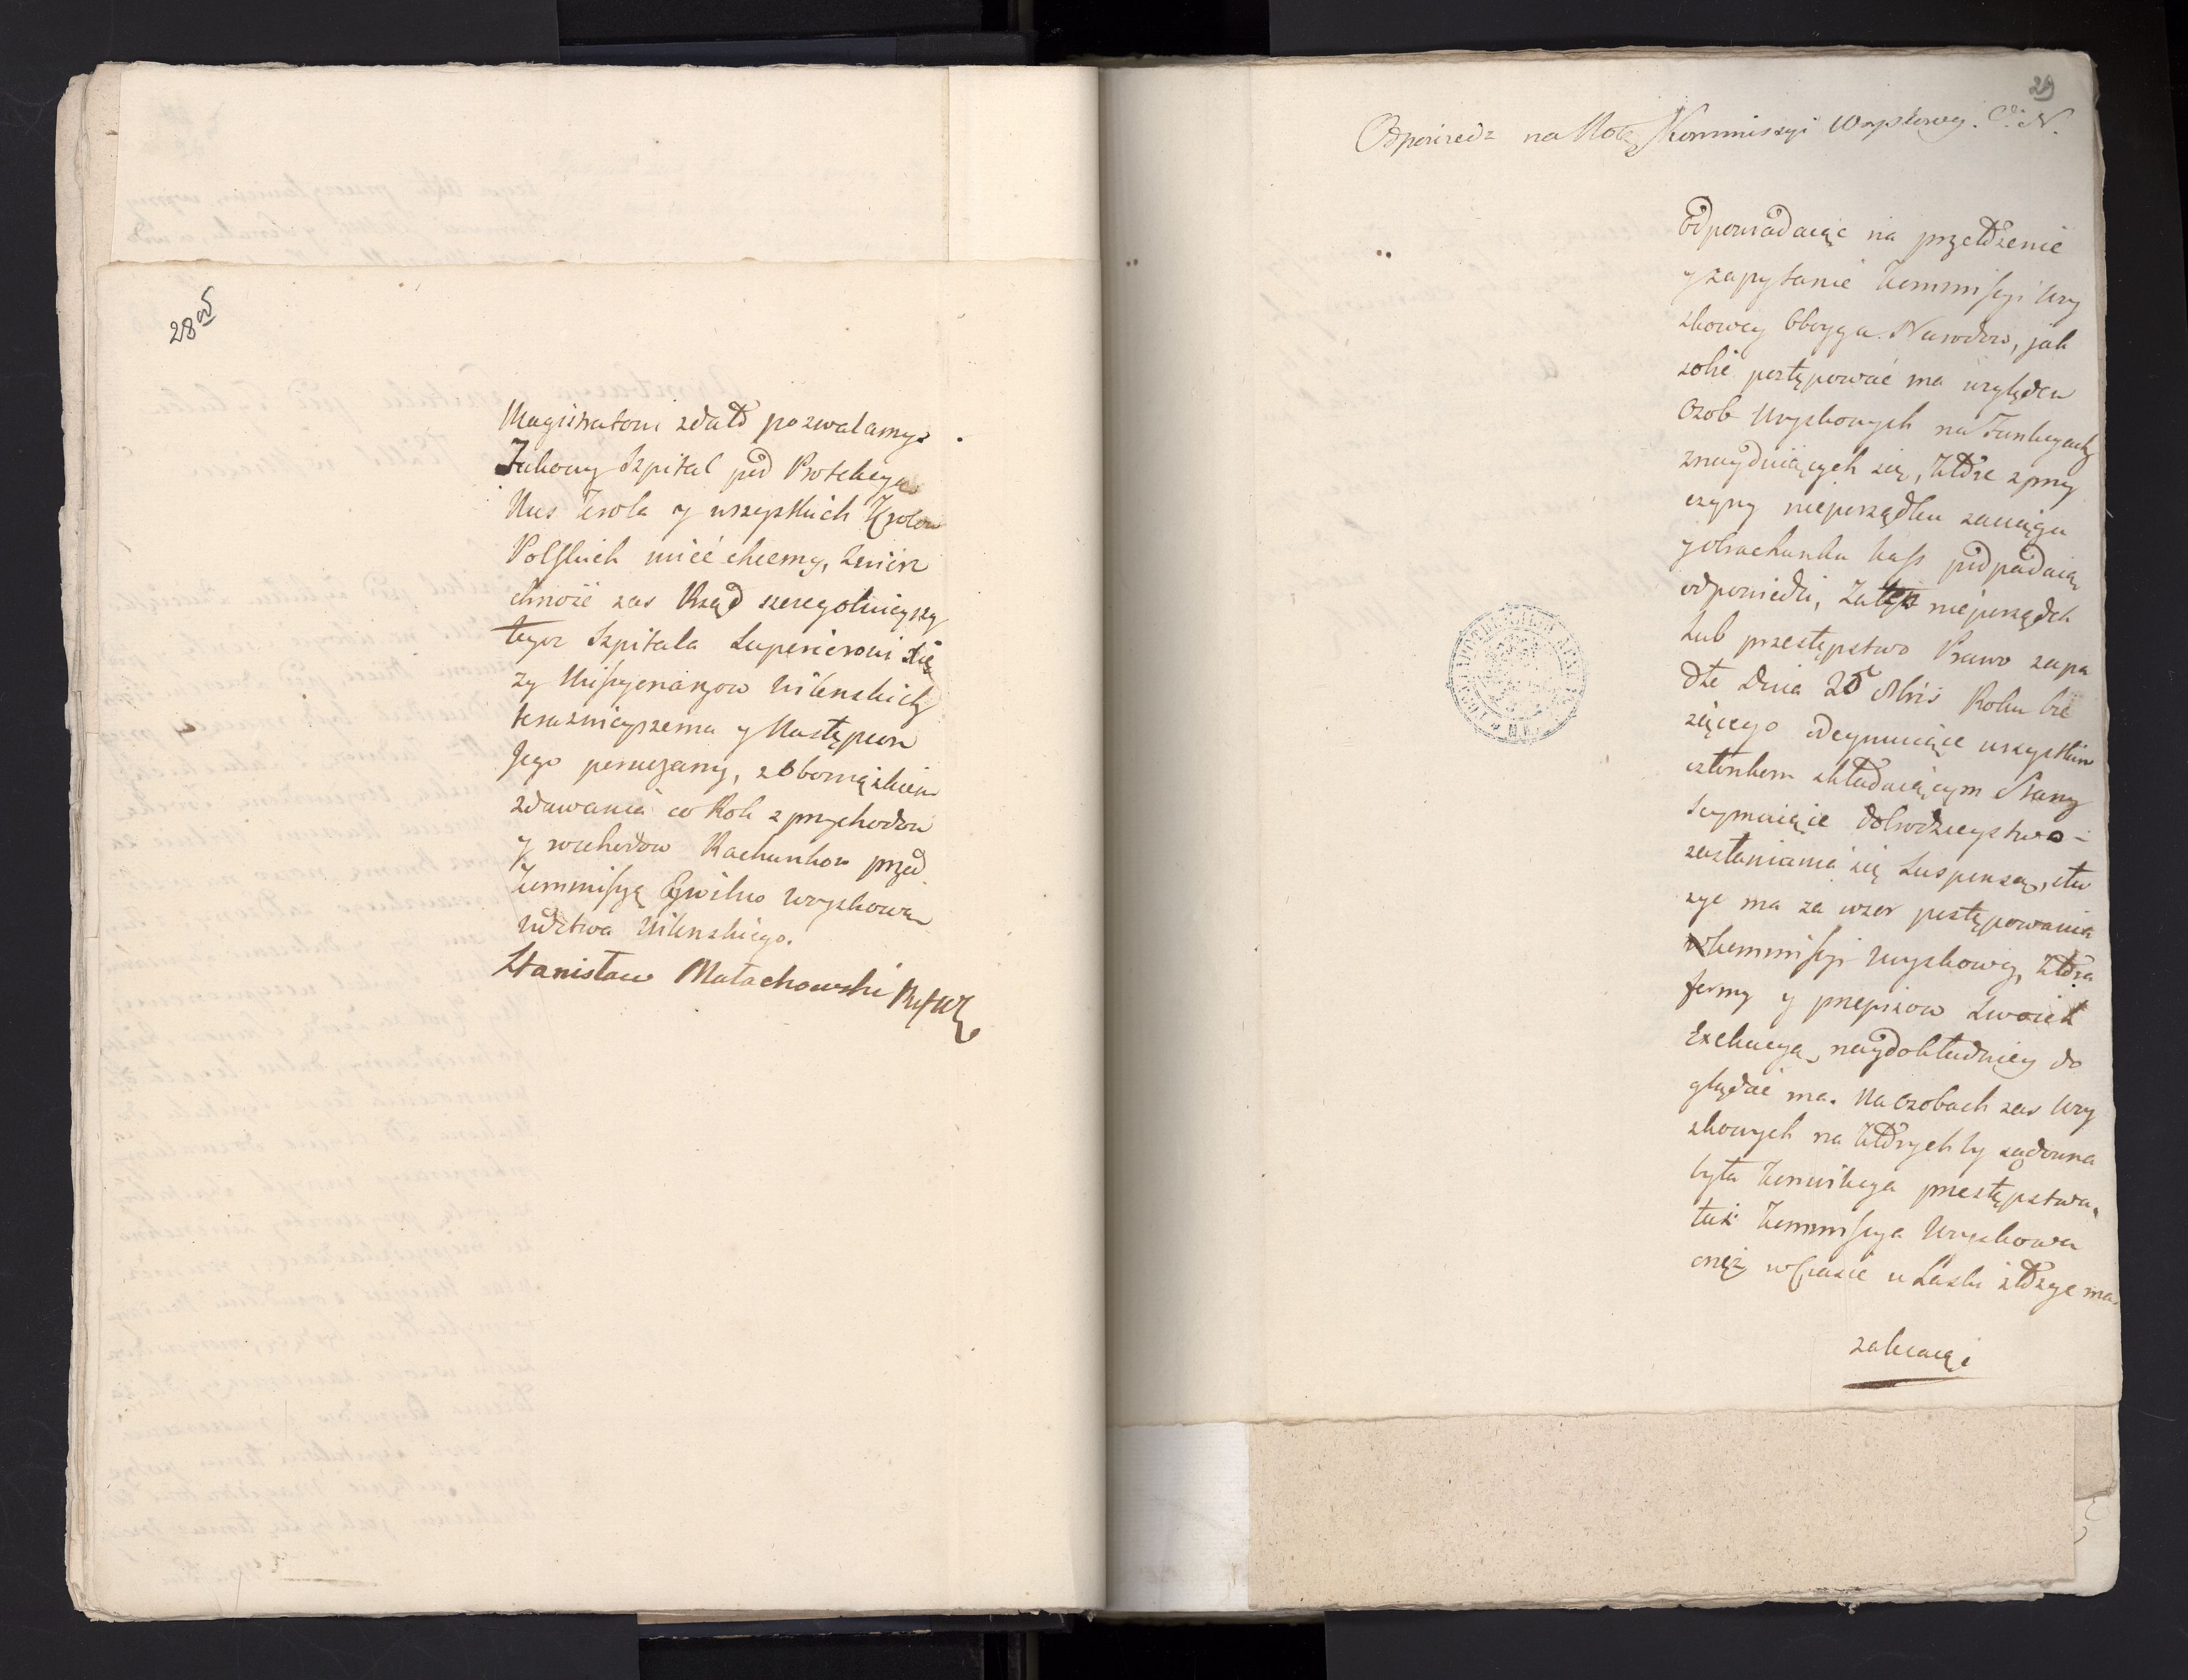 28 od
Magistratowi zdało pozwalamy.
Takowy Szpital pod Protekcyą
Nas Krola y wszystkich Krolow
Polskich mieć chcemy, zwierz
chność zas Rząd szczegolnieyszy
tegoz Szpitala Superiorowi Xię
zy Missyonarzow Wilenskich
teraznieyszemu y Następcom
Jego poruczamy, z obowiązkiem
zdawania co Rok z przychodow
y rozchodow Rachunkow przed
Kommissyą Cywilno Woyskową
Wdztwa Wilenskiego.
Stanisław Małachowski
29
Odpowiedz na Notę Kommissyi Woyskowey. O. N.
Odpowiadaiąc na przełożenie
y zapytanie Kommissyi Woy
skowey Oboyga Narodow, jak
sobie postępować ma względem
Osob Woyskowych na Funkcyach
znayduiących się, ktore z przy
czyny nieporządku zaciągu
y obrachunku kass podpadaią
odpowiedzi, Za nieporządek
Lub przestępstwo Prawo zapa
dłe Dnia 20 8bris Roku bie
żącego odeymuiące wszystkim
członkom składaiącym Stany
Seymuiące dobrodzieystwo
zasłaniania się Suspensą, słu
zyc ma za wzor postępowania
w Kommissyi Woyskowey, ktora
formy y przepisow Swoich
Exekucyą naydokładniey do
glądać ma. Na Osobach zas Woy
skowych na ktorych by sądowna
była Konwikcya przestępstwa,
taż Kommissya Woyskowa
onęż w Czasie u Laski złożyc ma
zalecaiąc